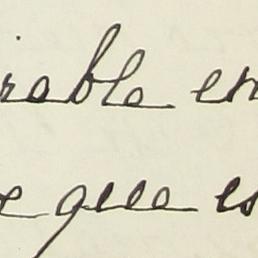 rable en
e que es